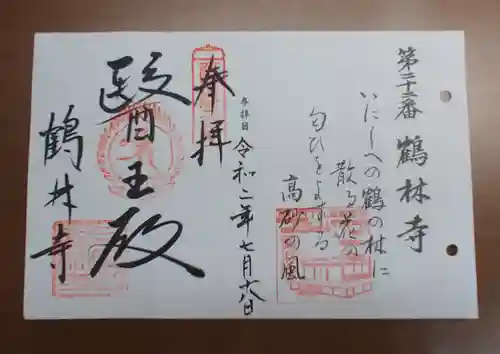 第二十二番 鶴林寺
いにしへの鶴の林に
散る花の
匂ひをよする
高砂の風
参拝日 令和二年七月十八日
奉拝
醫王殿
鶴林寺